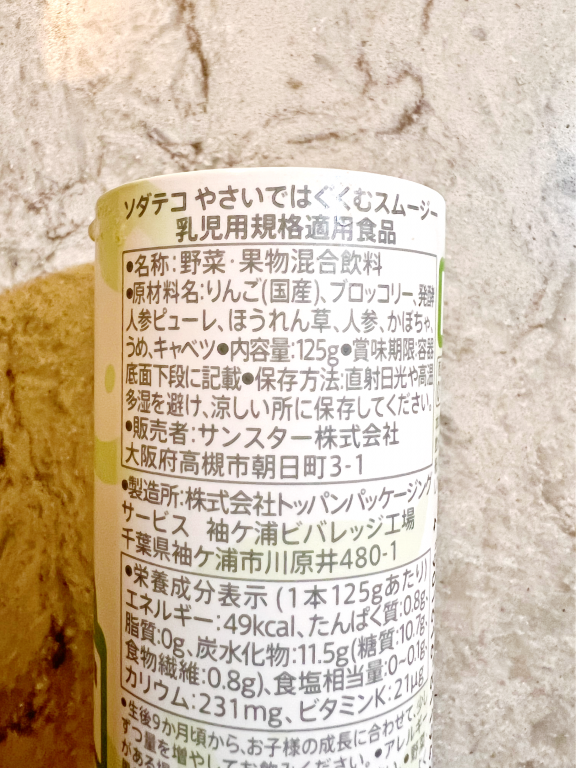 ソダテコ やさいではぐくむスムージー
乳児用規格適用食品
●名称:野菜・果物混合飲料
●原材料名:りんご(国産)、ブロッコリー、発酵
人参ピューレ、ほうれん草、人参、かぼちゃ、
うめ、キャベツ●内容量:125g●賞味期限:容器
底面下段に記載●保存方法:直射日光や高温
多湿を避け、涼しい所に保存してください。
●販売者:サンスター株式会社
大阪府高槻市朝日町3-1
●製造所:株式会社トッパンパッケージング
サービス 袖ケ浦ビバレッジ工場
千葉県袖ケ浦市川原井480-1
●栄養成分表示(1本125gあたり)
エネルギー:49kcal、たんぱく質:0.8g、
脂質:0g、炭水化物:11.5g(糖質:10.7g、
食物繊維:0.8g)、食塩相当量:0~0.1g、
カリウム:231mg、ビタミンK:21μg
●生後9か月頃から、お子様の成長に合わせて、少し
ずつ量を増やしてお飲みください。●アレルギー